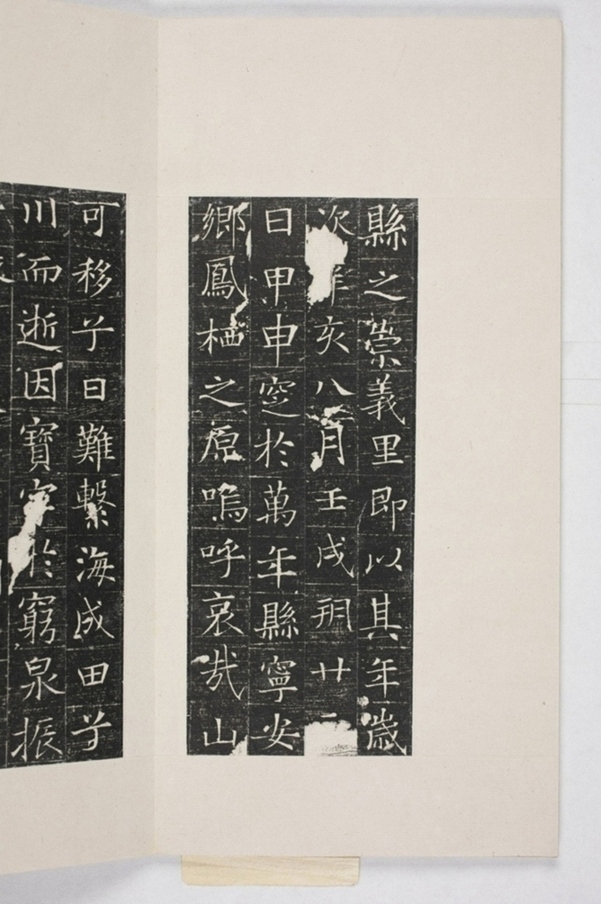 縣之崇義里即以其年歲
次辛亥八月壬戌朔廿
日甲申窆於萬年縣寧安
鄉鳳栖之原嗚呼哀哉山
可移兮日難繫海成田兮
川而逝因寶字於窮泉振